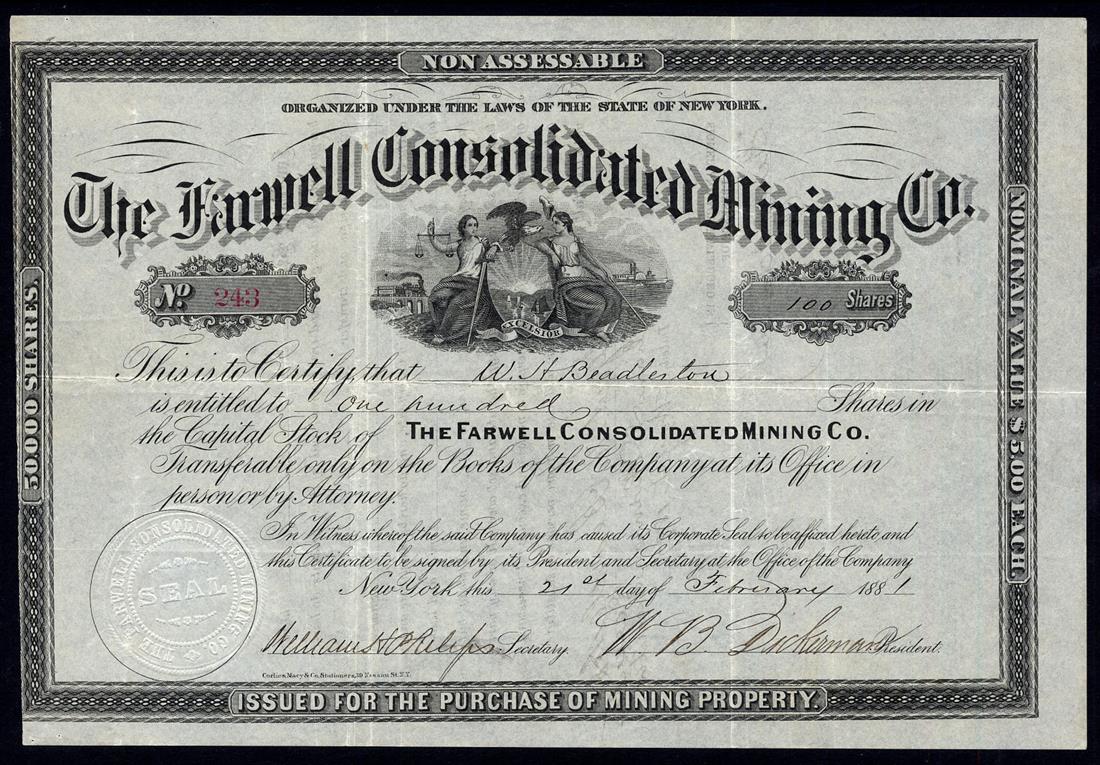 NON ASSESSABLE
ORGANIZED UNDER THE LAWS OF THE STATE OF NEW YORK.
The Farwell Consolidated Mining Co.
No. 243
EXCELSIOR
100 Shares
50000 SHARES.
NOMINAL VALUE $500 EACH.
This is to Certify, that W. H Beadleston
is entitled to One hundred Shares in
the Capital Stock of THE FARWELL CONSOLIDATED MINING CO.
Transferable only on the Books of the Company at its Office in
person or by Attorney.
In Witness whereof the said Company has caused its Corporate Seal to be affixed hereto and
this Certificate to be signed by its President and Secretary at the Office of the Company
New York this 21st day of February 1881
THE FARWELL CONSOLIDATED MINING CO.
SEAL
William H Philips Secretary.
W B Dickerman President.
Corlies, Macy & Co. Stationers, 39 Nassau St. N.Y.
ISSUED FOR THE PURCHASE OF MINING PROPERTY.